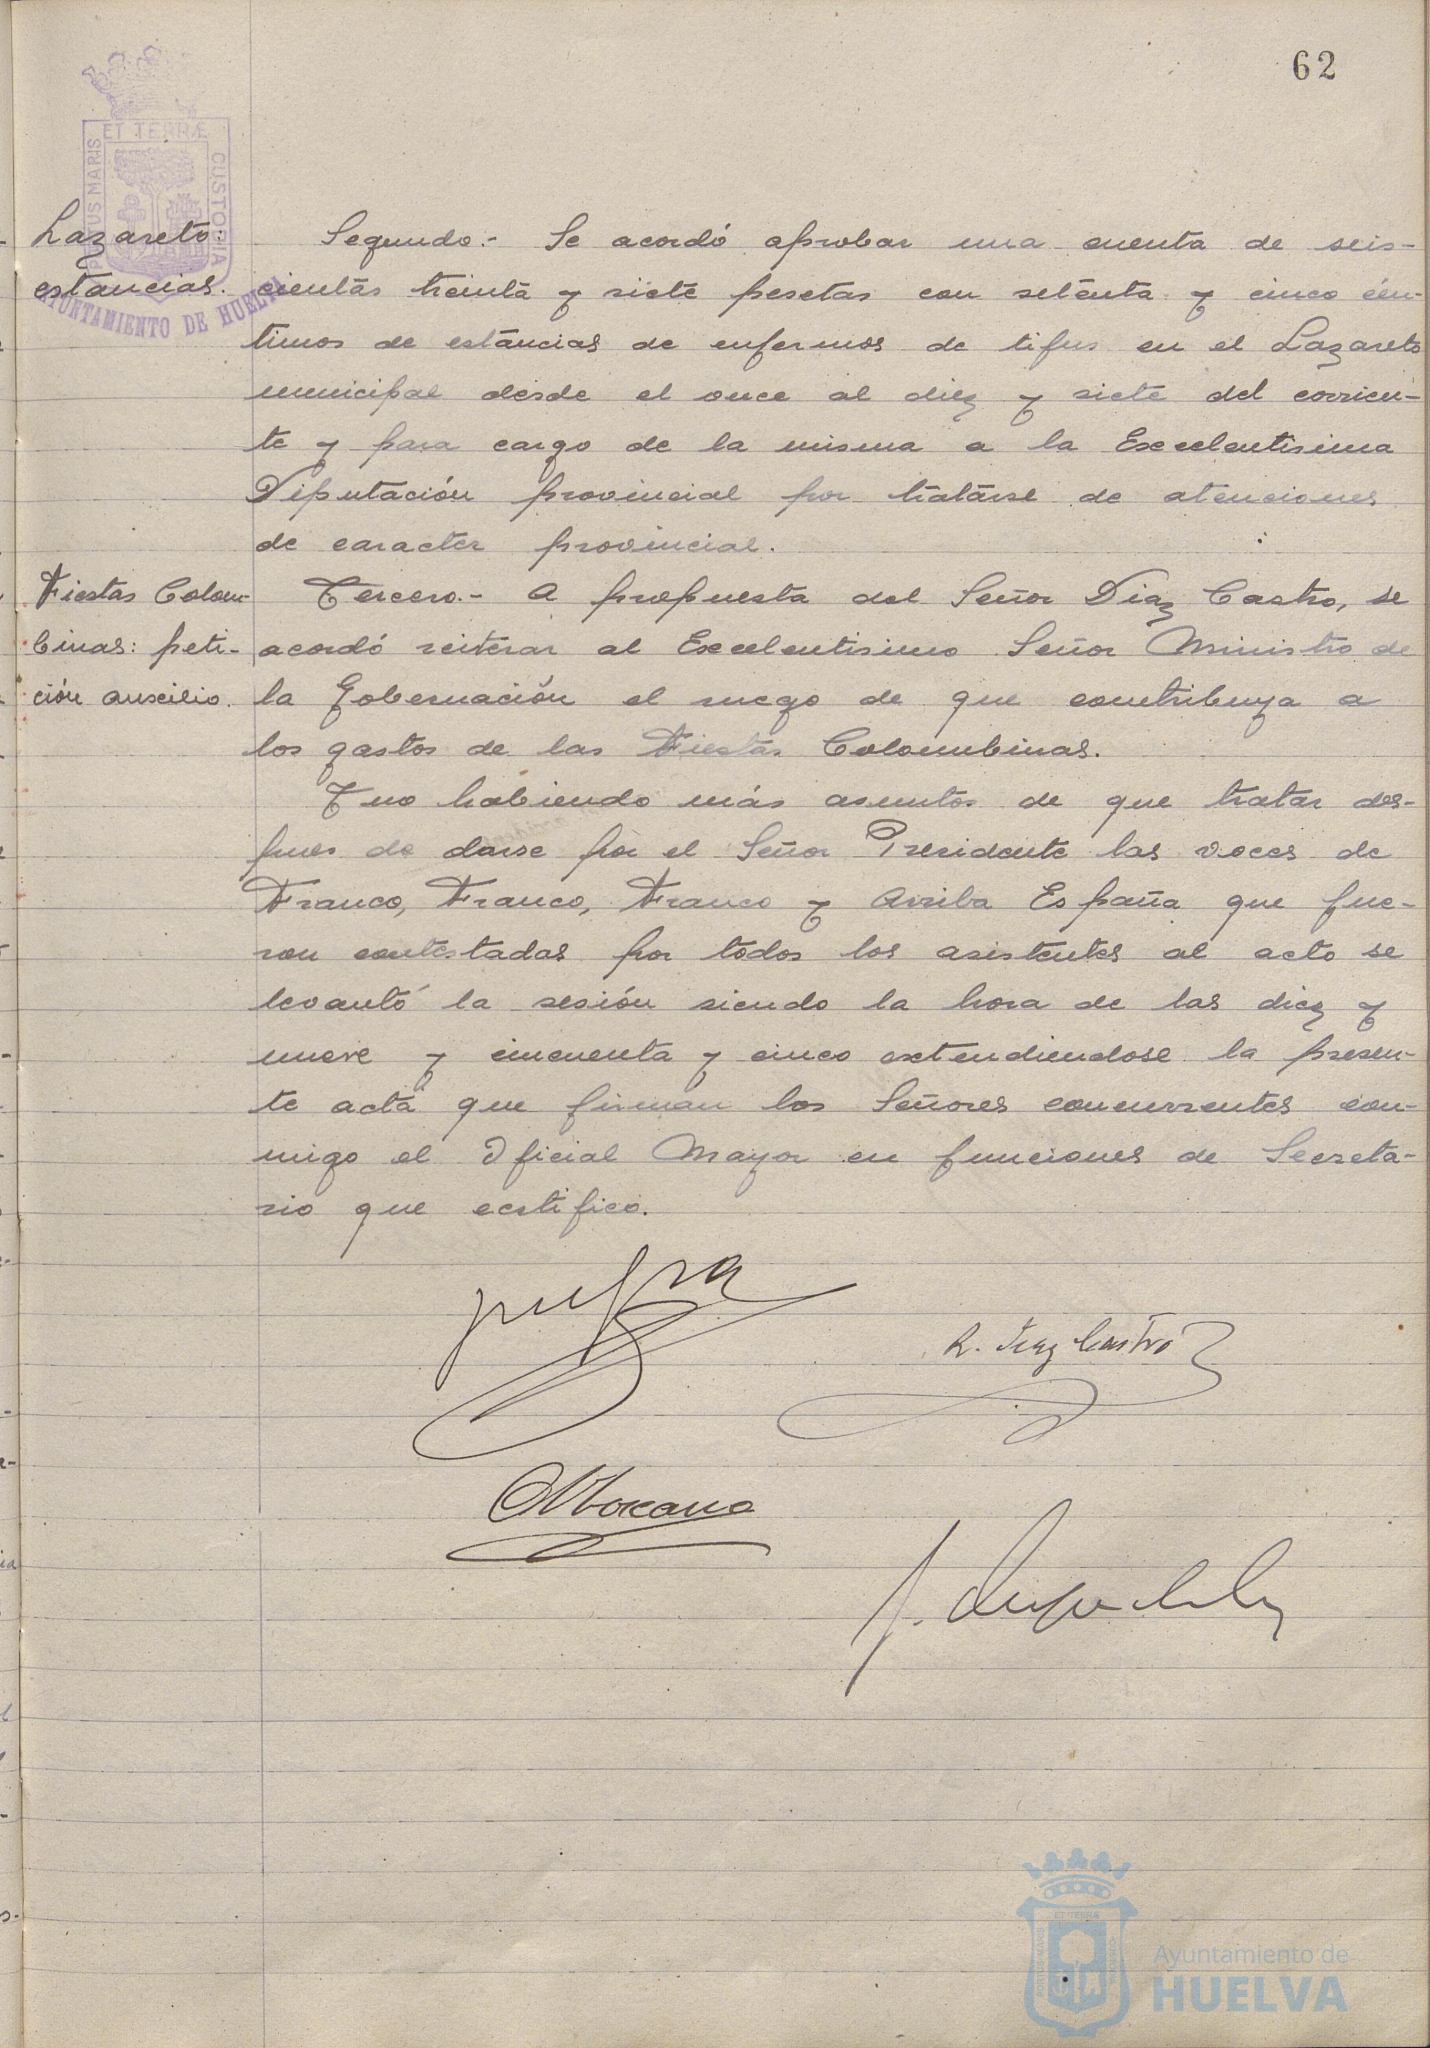 62
PORTUS MARIS
ET TERRÆ
CUSTODIA
AYUNTAMIENTO DE HUELVA
Lazareto:
estancias.
Segundo.- Se acordó aprobar una cuenta de seis-
cientas treinta y siete pesetas con setenta y cinco cén-
timos de estancias de enfermos de tifus en el Lazareto
municipal desde el once al diez y siete del corrien-
te y para cargo de la misma a la Excelentisima
Diputación provincial por tratarse de atenciones
de caracter provincial.
Fiestas Colom-
binas: peti-
ción auxilio.
Tercero.- A propuesta del Señor Diaz Castro, se
acordó reiterar al Excelentisimo Señor Ministro de
la Gobernación el ruego de que contribuya a
los gastos de las Fiestas Colombinas.
Y no habiendo más asuntos de que tratar des-
pues de darse por el Señor Presidente las voces de
Franco, Franco, Franco y Arriba España que fue-
ron contestadas por todos los asistentes al acto se
levantó la sesión siendo la hora de las diez y
nueve y cincuenta y cinco extendiendose la presen-
te acta que firman los Señores concurrentes con-
migo el Oficial Mayor en funciones de Secreta-
rio que certifico.
R. Diaz Castro
Ayuntamiento de
HUELVA